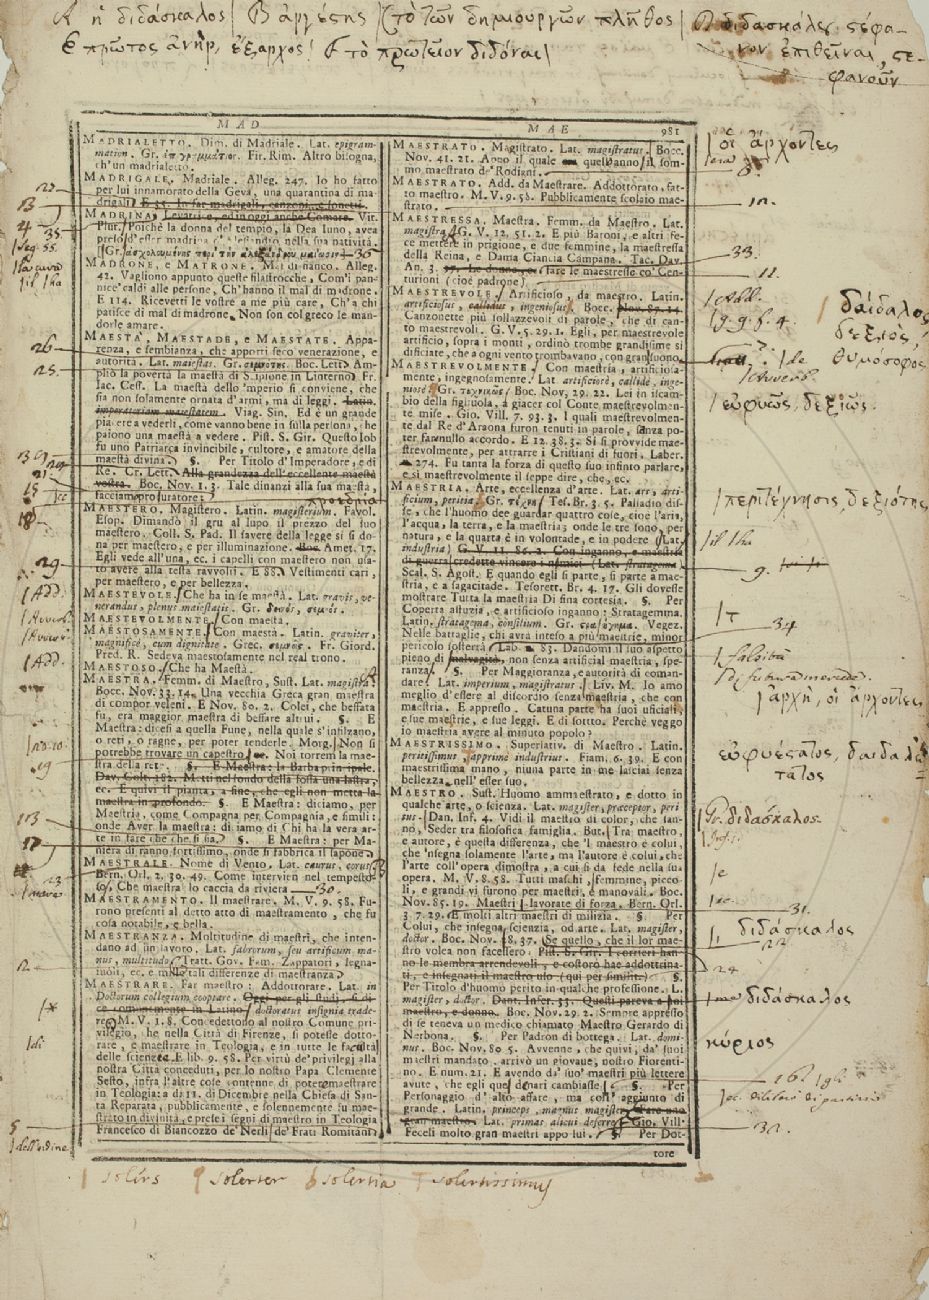 A ἡ διδάσκαλος | B ἀργέστης | C τὸ τῶν δημιουργῶν πλῆθος | D διδασκάλου στέφα-
νον ἐπιθεῖναι, στε-
φανοῦν
E πρῶτος ἀνὴρ, ἔξαρχος | F τὸ πρωτεῖον διδόναι
MAD
MADRIALETTO. Dim. di Madriale. Lat. epigram-
mation. Gr. ἐπιγραμμάτιον. Fir. Rim. Altro bisogna,
ch'un madrialetto.
MADRIGALE. Madriale. Alleg. 247. Io ho fatto
per lui innamorato della Geva, una quarantina di ma-
drigali. E 35. In far madrigali, canzoni, e sonetti.
MADRINA. Levatrice, ed in oggi anche Comare. Vit.
Plut. Poichè la donna del tempio, la Dea Iuno, avea
preso d'esser madrina d'Alessandro nella sua natività.
MADRONE, e MATRONE. Mal di fianco. Alleg.
42. Vagliono appunto quelle filastrocche, Com'i pan-
nice'caldi alle persone, Ch'hanno il mal di madrone.
E 114. Ricevetti le vostre a me più care, Ch'a chi
patisce di mal di madrone. Non son col greco le man-
dorle amare.
MAESTÀ, MAESTADE, e MAESTATE. Appa-
renza, e sembianza, che apporti seco venerazione, e
autorità. Lat. maiestas. Gr. σεμνότης. Boc. Lett. Am-
pliò la povertà la maestà di Scipione in Linterno. Fr.
Iac. Cess. La maestà dello 'mperio si conviene, che
sia non solamente ornata d'armi, ma di leggi. Latin.
imperatoriam maiestatem. Viag. Sin. Ed è un grande
piacere a vederli, come vanno bene in sulla persona, che
paiono una maestà a vedere. Pist. S. Gir. Questo Iob
fu uno Patriarca invincibile, cultore, e amatore della
maestà divina. §. Per Titolo d'Imperadore, e di
Re. Cr. Lett. Alla grandezza dell'eccellente maestà
vostra. Boc. Nov. 1. 3. Tale dinanzi alla sua maestà,
facciamo procuratore.
MAESTERO. Magistero. Latin. magisterium. Favol.
Esop. Dimandò il gru al lupo il prezzo del suo
maestero. Coll. S. Pad. Il savere della legge si si do-
na per maestero, e per illuminazione. Boc. Amet. 17.
Egli vede all'una, ec. i capelli con maestero non usa-
to avere alla testa ravvolti. E 88. Vestimenti cari,
per maestero, e per bellezza.
MAESTEVOLE. Che ha in se maestà. Lat. gravis, ve-
nerandus, plenus maiestatis. Gr. δεινός, σεμνός.
MAESTEVOLMENTE. Con maestà.
MAESTOSAMENTE. Con maestà. Latin. graviter,
magnificè, cum dignitate. Grec. σεμνῶς. Fr. Giord.
Pred. R. Sedeva maestosamente nel real trono.
MAESTOSO. Che ha Maestà.
MAESTRA. Femm. di Maestro, Sust. Lat. magistra.
Bocc. Nov. 33. 14. Una vecchia Greca gran maestra
di compor veleni. E Nov. 80. 2. Colei, che beffata
fu, era maggior maestra di beffare altrui. §. E
Maestra: dicesi a quella Fune, nella quale s'infilzano,
o reti, o ragne, per poter tenderle. Morg. Non si
potrebbe trovare un capestro, ec. Noi torrem la mae-
stra della ret. §. E Maestra: la Barba principale.
Dav. Colt. 182. Metti nel fondo della fossa una lastra,
ec. E quivi il pianta, a fine, che egli non metta la
maestra in profondo. §. E Maestra: diciamo, per
Maestria, come Compagna per Compagnia, e simili:
onde Aver la maestra: diciamo di Chi ha la vera ar-
te in fare che che si sia. §. E Maestra: per Ma-
niera di ranno fortissimo, onde si fabbrica il sapone.
MAESTRALE. Nome di Vento. Lat. caurus, corus.
Bern. Orl. 2. 30. 49. Come intervien nel tempesto-
so, Che maestral lo caccia da riviera
MAESTRAMENTO. Il maestrare. M. V. 9. 58. Fu-
rono presenti al detto atto di maestramento, che fu
cosa notabile, e bella.
MAESTRANZA. Moltitudine di maestri, che inten-
dano ad un lavoro. Lat. fabrorum, seu artificum ma-
nus, multitudo. Tratt. Gov. Fam. Zappatori, legna-
iuoli, ec. e mille tali differenze di maestranza.
MAESTRARE. Far maestro: Addottorare. Lat. in
Doctorum collegium cooptare. Oggi per gli studj, si di-
ce comunemente in Latino, doctoratus insignia trade-
re. M. V. 1. 8. Concedettono al nostro Comune pri-
vilegio, che nella Città di Firenze, si potesse dotto-
rare, e maestrare in Teologia, e in tutte le facultà
delle scienze. E lib. 9. 58. Per virtù de' privilegj alla
nostra Città conceduti, per lo nostro Papa Clemente
Sesto, infra l'altre cose contenne di poter maestrare
in Teologia: a dì 11. di Dicembre nella Chiesa di San-
ta Reparata, pubblicamente, e solennemente fu mae-
strato in divinità, e prese i segni di maestro in Teologia
Francesco di Biancozzo de' Nerli de' Frati Romitani.
MAE 981
MAESTRATO. Magistrato. Lat. magistratus. Bocc.
Nov. 41. 21. Appo il quale quell'anno il som-
mo maestrato de' Rodiani.
MAESTRATO. Add. da Maestrare. Addottorato, fat-
to maestro. M. V. 9. 58. Pubblicamente scolaio mae-
strato.
MAESTRESSA. Maestra. Femm. da Maestro. Lat.
magistra. G. V. 12. 51. 2. E più Baroni, e altri fe-
ce mettere in prigione, e due femmine, la maestressa
della Reina, e Dama Ciancia Campana. Tac. Dav.
An. 3. 57. Le donne, ec. fare le maestresse co' Cen-
turioni (cioè padrone)
MAESTREVOLE. Artificioso, da maestro. Latin.
artificiosus, callidus, ingeniosus. Bocc. Nov. 89. 14.
Canzonette più sollazzevoli di parole, che di can-
to maestrevoli. G. V. 5. 29. 1. Egli, per maestrevole
artificio, sopra i monti, ordinò trombe grandissime sì
dificiate, che a ogni vento trombavano, con gran suono.
MAESTREVOLMENTE. Con maestria, artificiosa-
mente, ingegnosamente. Lat. artificiosè, callidè, inge-
niosè. Gr. τεχνικῶς. Boc. Nov. 29. 22. Lei in iscam-
bio della figliuola, a giacer col Conte maestrevolmen-
te mise. Gio. Vill. 7. 93. 3. I quali maestrevolmen-
te dal Re d'Araona furon tenuti in parole, sanza po-
ter far nullo accordo. E 12. 38. 3. Sì si provvide mae-
strevolmente, per attrarre i Cristiani di fuori. Laber.
274. Fu tanta la forza di questo suo infinto parlare,
e sì maestrevolmente il seppe dire, che, ec.
MAESTRIA. Arte, eccellenza d'arte. Lat. ars, arti-
ficium, peritia. Gr. τέχνη. Tes. Br. 3. 5. Palladio dis-
se, che l'huomo dee guardar quattro cose, cioè l'aria,
l'acqua, la terra, e la maestria; onde le tre sono, per
natura, e la quarta è in volontade, e in podere (Lat.
industria) G. V. 11. 86. 2. Con inganno, e maestria
di guerra credette vincere i nimici (Lat. stratagema)
Scal. S. Agost. E quando egli si parte, si parte a mae-
stria, e a sagacitade. Tesorett. Br. 4. 17. Gli dovesse
mostrare Tutta la maestria Di fina cortesia. §. Per
Coperta astuzia, e artificioso inganno: Stratagemma.
Latin. stratagema, consilium. Gr. στρατήγημα. Vegez.
Nelle battaglie, chi avrà inteso a più maestrie, minor
pericolo sosterrà. Lab. 83. Dandomi il suo aspetto
pieno di malvagità, non senza artificial maestria, spe-
ranza. §. Per Maggioranza, e autorità di coman-
dare. Lat. imperium, magistratus. Liv. M. Io amo
meglio d'essere al discordio senza maestria, che con
maestria. E appresso. Catuna parte ha suoi uficiali,
e sue maestrie, e sue leggi. E di sotto. Perchè veggo
io maestria avere al minuto popolo?
MAESTRISSIMO. Superlativ. di Maestro. Latin.
peritissimus, apprimè industrius. Fiam. 6. 39. E con
maestrissima mano, niuna parte in me lasciai senza
bellezza, nell'esser suo.
MAESTRO. Sust. Huomo ammaestrato, e dotto in
qualche arte, o scienza. Lat. magister, præceptor, peri-
tus. Dan. Inf. 4. Vidi il maestro di color, che san-
no, Seder tra filosofica famiglia. But. Tra maestro,
e autore, è questa differenza, che 'l maestro è colui,
che 'nsegna solamente l'arte, ma l'autore è colui, che
l'arte coll'opera dimostra, a cui si dà fede nella sua
opera. M. V. 8. 58. Tutti maschi, femmine, picco-
li, e grandi vi furono per maestri, e manovali. Boc.
Nov. 85. 19. Maestri lavorate di forza. Bern. Orl.
3. 7. 29. E molti altri maestri di milizia. §. Per
Colui, che insegna scienzia, od arte. Lat. magister,
doctor. Boc. Nov. 8. 37. Se quello, che il lor mae-
stro volea non facessero. Pist. S. Gir. I corrieri han-
no le membra arrendevoli, e costoro hae addottrina-
ti, e insegnati il maestro uso (qui per simili). §.
Per Titolo d'huomo perito in qualche professione. L.
magister, doctor. Dant. Infer. 33. Questi pareva a me
maestro, e donno. Boc. Nov. 29. 2. Sempre appresso
di se teneva un medico chiamato Maestro Gerardo di
Nerbona. §. Per Padron di bottega. Lat. domi-
nus. Boc. Nov. 80. 5. Avvenne, che quivi, da' suoi
maestri mandato, arrivò un giovane, nostro Fiorenti-
no. E num. 21. E avendo da' suo' maestri più lettere
avute, che egli que' denari cambiasse. §. Per
Personaggio d'alto affare, ma coll'aggiunto di
grande. Latin. princeps, magnus magister. Fare uno
gran maestro. Lat. primas alicui deferre. Gio. Vill.
Fecesi molto gran maestri appo lui. §. Per Dot-
tore
27
13
4 35
26
25
31
15
18
29
Add.
Add.
19
113
17
23
2
di
5
dell'ordine
οἱ ἄρχοντες
8.
10.
33.
11.
Add.
g. 9. f. 4.
δαίδαλος
δεξιὸς,
θυμοσοφος
Avverb.
εὐφυῶς, δεξιῶς.
περιτέχνησις δεξιότης
il lha
9.
T
34
falsità
di futura mercede.
ἀρχὴ, οἱ ἄρχοντες
εὐφυέστατος, δαιδαλώ-
τατος
Gr. διδάσκαλος.
e
31.
διδάσκαλος
22
24
διδάσκαλος
κύριος
16.
32.
solers solerter solertia solertissimus